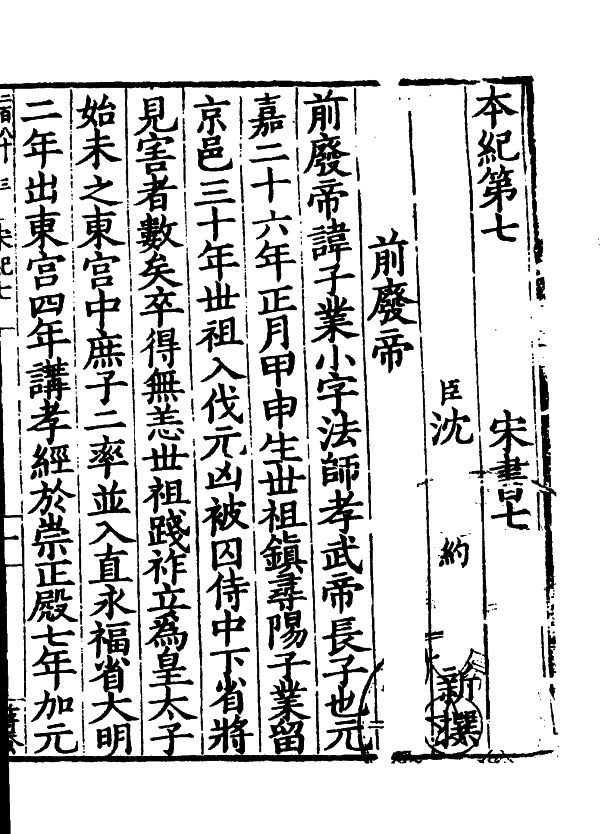 本紀第七　宋書七
臣沈約新撰
前廢帝
前廢帝諱子業小字法師孝武帝長子也元
嘉二十六年正月甲申生世祖鎮尋陽子業留
京邑三十年世祖入伐元凶被囚侍中下省將
見害者數矣卒得無恙世祖踐祚立為皇太子
始未之東宮中庶子二率並入直永福省大明
二年出東宮四年講孝經於崇正殿七年加元
二百八十三 宋紀七